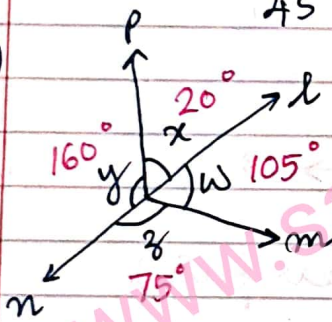 45
p
20°
l
x
160°
y
w
105°
z
m
75°
n
www.s